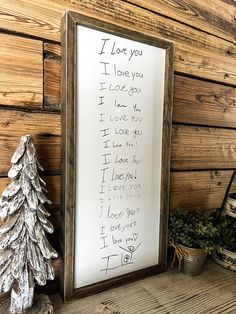 I Love you
I love you
I Love you
I love you
I LOVE you
I LOVE YOU
I Love you!
I love you
I LOVE you
I Love you!
I LOVE YOU
I love you
I love you
I love you
I love you♡
I love you♡
I